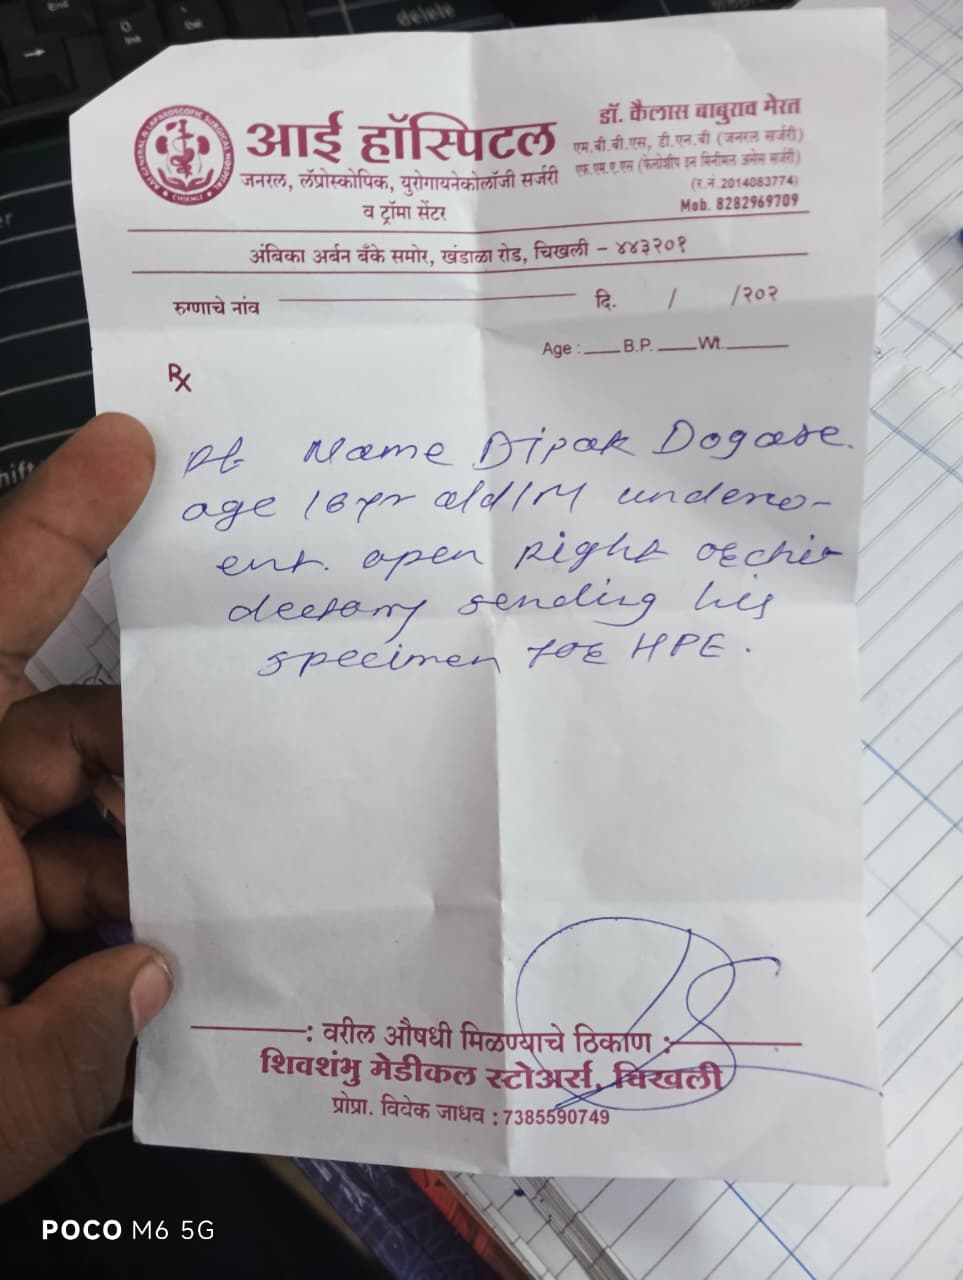 delete
AAI GENERAL & LAPAROSCOPIC SURGICAL HOSPITAL
CHIKHLI
आई हॉस्पिटल
जनरल, लॅप्रोस्कोपिक, युरोगायनेकोलॉजी सर्जरी
व ट्रॉमा सेंटर
डॉ. कैलास बाबुराव मेरत
एम.बी.बी.एस, डी.एन.बी (जनरल सर्जरी)
एफ.एम.ए.एस (फेलोशीप इन मिनीमल असेस सर्जरी)
(र.नं.2014083774)
Mob. 8282969709
अंबिका अर्बन बँके समोर, खंडाळा रोड, चिखली - ४४३२०१
रुग्णाचे नांव दि. / /२०२
Age : B.P. Wt.
Rx
Pt Name Dipak Dogare.
age 16 yr old/M underw-
ent. open Right orchi
dectomy sending his
specimen for HPE.
: वरील औषधी मिळण्याचे ठिकाण :
शिवशंभु मेडीकल स्टोअर्स, चिखली
प्रोप्रा. विवेक जाधव : 7385590749
POCO M6 5G